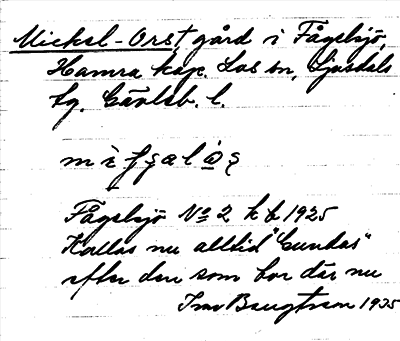 Mickel-Ors, gård i Fågelsjö,
Hamra kap. Los sn, Ljusdals
tg. Gävleb. l.
Fågelsjö No 2 kb 1925
Kallas nu alltid "Gundas"
efter den som bor där nu
Bengtsson 1935